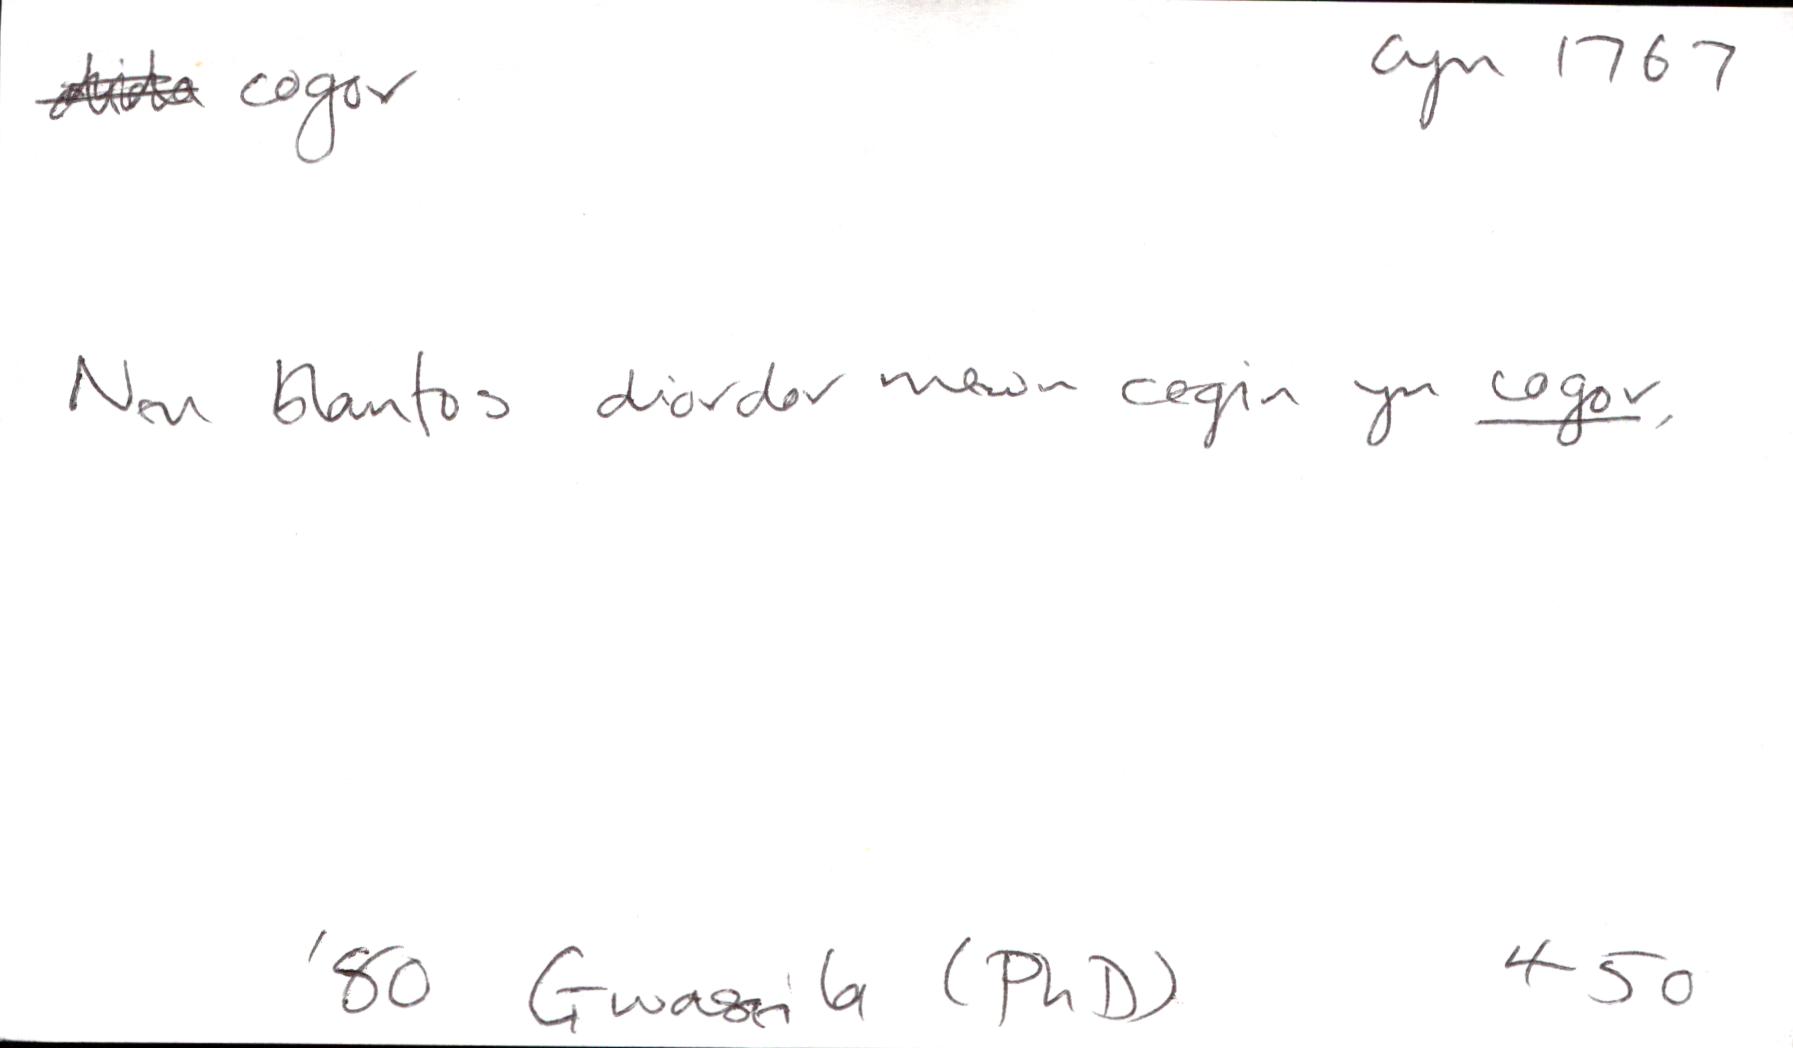 cogor cyn 1767
Nen blantos diordor mewn cegin yn cogor,
'80 Gwasaila (PhD) 450